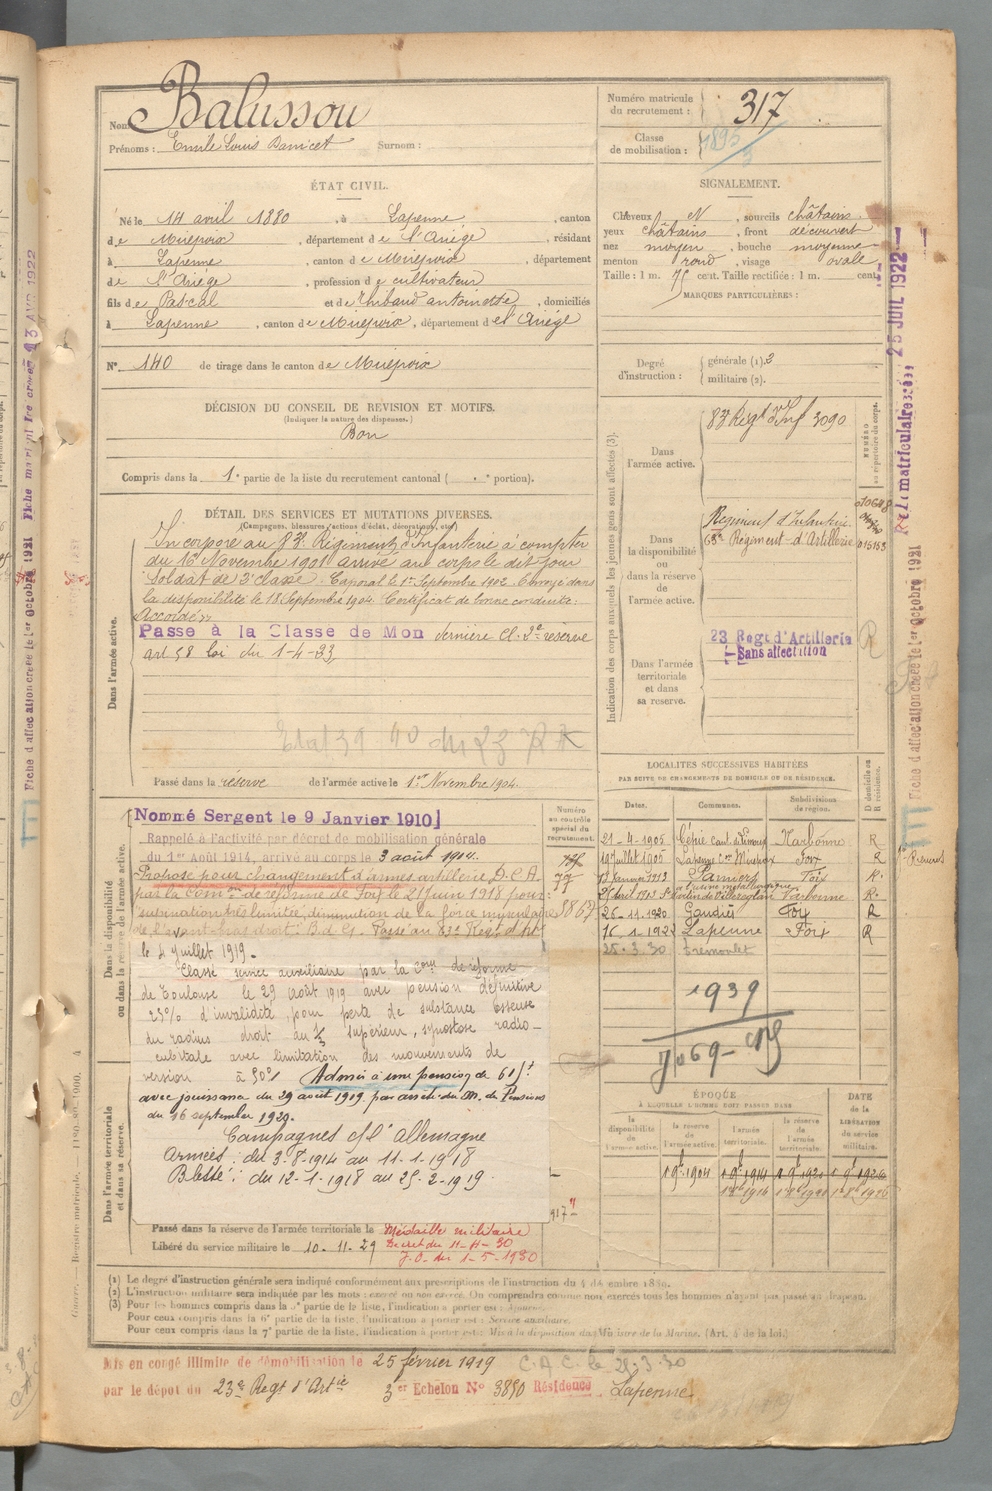 Nom Balussou
Prénoms : Emile Louis Surnom :
Numéro matricule du recrutement : 317
Classe de mobilisation : 1895
ÉTAT CIVIL.
Né le 14 avril 1880, à Lapenne, canton
de Mirepoix, département de l'Ariége, résidant
à Lapenne, canton de Mirepoix, département
de l'Ariége, profession de cultivateur
fils de Pascal et de Thibaud antoinette, domiciliés
à Lapenne, canton de Mirepoix, département de l'Ariége
N° 140 de tirage dans le canton de Mirepoix
SIGNALEMENT.
Cheveux N, sourcils châtains
yeux châtains, front découvert
nez moyen, bouche moyenne
menton rond, visage ovale
Taille : 1 m. 75 cent. Taille rectifiée : 1 m. cent.
MARQUES PARTICULIÈRES :
Degré d'instruction : générale (1). 3
militaire (2).
DÉCISION DU CONSEIL DE REVISION ET MOTIFS.
(Indiquer la nature des dispenses.)
Bon
Compris dans la 1e partie de la liste du recrutement cantonal ( e portion).
DÉTAIL DES SERVICES ET MUTATIONS DIVERSES.
(Campagnes, blessures, actions d'éclat, décorations, etc.)
Dans l'armée active.
Incorporé au 83e Régiment d'Infanterie à compter
du 16 Novembre 1901 arrivé au corps le dit jour
Soldat de 2e classe. Caporal le 1er Septembre 1902. Envoyé dans
la disponibilité le 18 Septembre 1904. Certificat de bonne conduite :
Accordé
Passé à la Classe de Mob dernière cl. 2e réserve
art 58 loi du 1-4-23
Passé dans la réserve de l'armée active le 1er Novembre 1904.
Indication des corps auxquels les jeunes gens sont affectés (3).
NUMÉRO au répertoire du corps.
Dans l'armée active.
83e Regt d'Inf 3090
Dans la disponibilité ou dans la réserve de l'armée active.
Régiment d'Infanterie
Régiment d'Artillerie 015153
Dans l'armée territoriale et dans sa réserve.
23 Regt d'Artillerie
Sans affectation
R
LOCALITÉS SUCCESSIVES HABITÉES
PAR SUITE DE CHANGEMENTS DE DOMICILE OU DE RÉSIDENCE.
Dates. Communes. Subdivisions de région. D domicile ou R résidence.
21-4-1905 Cépie Cant. de Limoux Narbonne R
19 Juillet 1905 Lapenne Con Mirepoix Foix R
13 Janvier 1913 Pamiers Foix R.
Narbonne R
26-11-1920 Gaudiès Foix R
16-1-1922 Lapenne Foix R
25-3-30 Tremoulet
1939
Dans la disponibilité ou dans la réserve de l'armée active.
Numéro au contrôle spécial du recrutement.
Nommé Sergent le 9 Janvier 1910
Rappelé à l'activité par décret de mobilisation générale
du 1er Août 1914, arrivé au corps le 3 août 1914.
Proposé pour changement d'armes artillerie D.C.A.
par la Comon de réforme de Foix le 21 Juin 1918 pour :
supination très limitée, diminution de la force musculaire
de l'avant-bras droit. B. de G. Passé au 23e Regt d'Art
le 4 Juillet 1919.
Classé service auxiliaire par la Com de réforme
de Toulouse le 29 août 1919 avec pension définitive
25% d'invalidité pour perte de substance osseuse
du radius droit au ⅓ supérieur, synostose radio-
cubitale avec limitation des mouvements de
version à 50°. Admis à une pension de
avec jouissance du 29 août 1919 par arrêté du M. des Pensions
du 16 septembre 1920.
Campagnes c/ l'Allemagne
Armées : du 3-8-1914 au 11-1-1918
Blessé : du 12-1-1918 au 25-2-1919.
Dans l'armée territoriale et dans sa réserve.
Passé dans la réserve de l'armée territoriale le
Libéré du service militaire le 10-11-29
Médaille militaire
Décret du
J.O. du 1-5-1930
ÉPOQUE
À LAQUELLE L'HOMME DOIT PASSER DANS
la disponibilité de l'armée active. la réserve de l'armée active. l'armée territoriale. la réserve de l'armée territoriale.
DATE de la LIBÉRATION du service militaire.
(1) Le degré d'instruction générale sera indiqué conformément aux prescriptions de l'instruction du 4 décembre 1889.
(2) L'instruction militaire sera indiquée par les mots : exercé ou non exercé. On comprendra comme non exercés tous les hommes n'ayant pas passé au drapeau.
(3) Pour les hommes compris dans la 5e partie de la liste, l'indication à porter est :
Pour ceux compris dans la 6e partie de la liste, l'indication à porter est : Service auxiliaire.
Pour ceux compris dans la 7e partie de la liste, l'indication à porter est : Mis à la disposition du Ministre de la Marine. (Art. 4 de la loi.)
Mis en congé illimité de démobilisation le 25 février 1919 C.A.C. le 25-3-30
par le dépot du 23e Regt d'Artie 3er Echelon N° 3850 Résidence Lapenne
Fiche d'affectation créée le 1er Octobre 1921
Fiche matriculaire créée
25 JUIL 1922